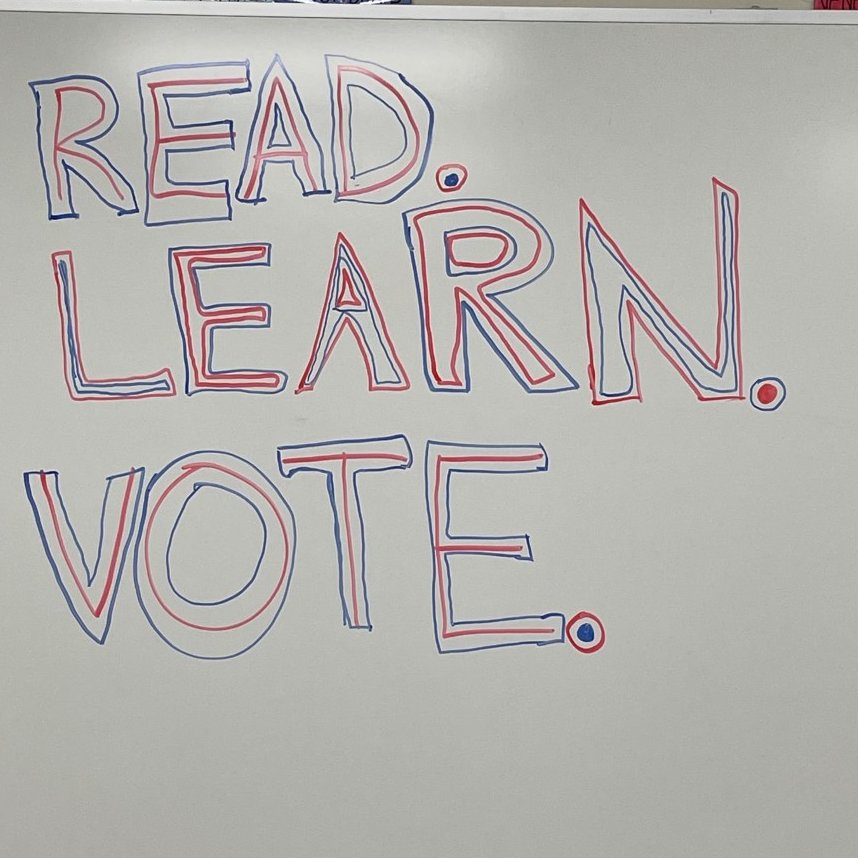 READ.
LEARN.
VOTE.